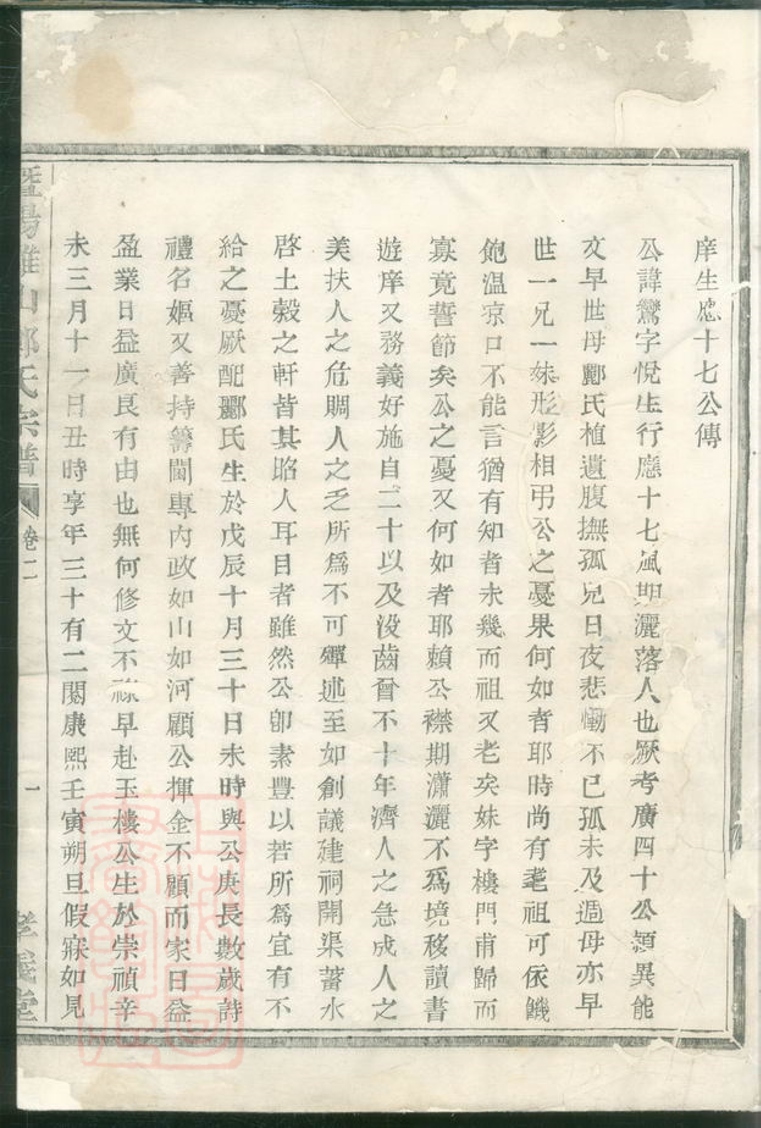 庠生應十七公傳
公諱鸞字悅生行應十七風期灑落人也厥考廣四十公穎異能
文早世母酈氏植遺腹撫孤兒日夜悲慟不已孤未及週母亦早
世一兄一妹形影相弔公之憂果何如者耶時尚有耄祖可依饑
飽溫凉口不能言猶有知者未幾而祖又老矣妹字樓門甫歸而
寡竟誓節矣公之憂又何如者耶賴公襟期瀟灑不爲境移讀書
遊庠又務義好施自二十以及沒齒曾不十年濟人之急成人之
美扶人之危賙人之乏所爲不可殫述至如創議建祠開渠蓄水
啓土穀之軒皆其昭人耳目者雖然公卽素豐以若所爲宜有不
給之憂厥配酈氏生於戊辰十月三十日未時與公庚長數歲詩
禮名嫗又善持籌閫專內政如山如河顧公揮金不顧而家日益
盈業日益廣良有由也無何修文不祿早赴玉樓公生於崇禎辛
未三月十一日丑時享年三十有二閱康熙壬寅朔旦假寐如見
暨陽 山 氏宗譜 卷二 一 孝義堂